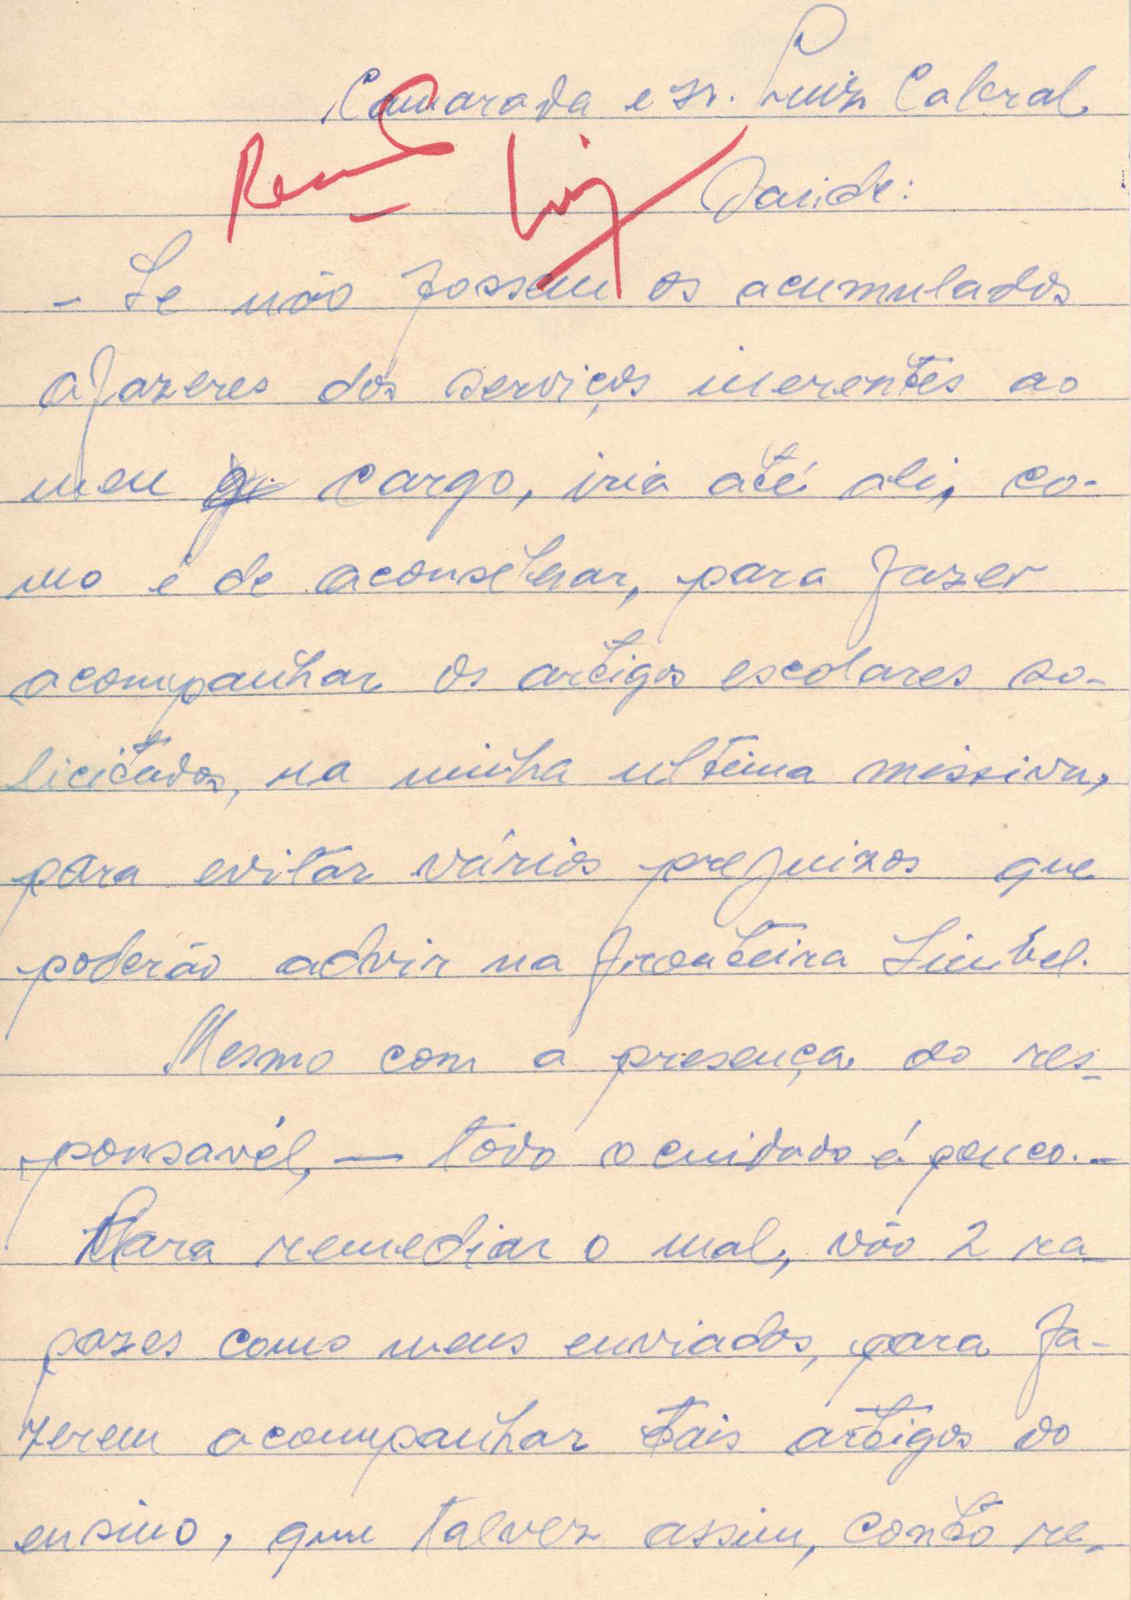 Camarada e sr. Luiz Cabral
Luiz
Saúde:
- Se não fossem os acumulados
afazeres dos serviços inerentes ao
meu cargo, iria até ali, co-
mo é de aconselhar, para fazer
acompanhar os artigos escolares so-
licitados, na minha ultima missiva,
para evitar vários prejuizos que
poderão advir na fronteira Simbel.
Mesmo com a presença do res-
ponsavél, — todo o cuidado é pouco. -
Para remediar o mal, vão 2 ra-
pazes como meus enviados, para fa-
zerem acompanhar tais artigos do
ensino, que talvez assim, conto re-